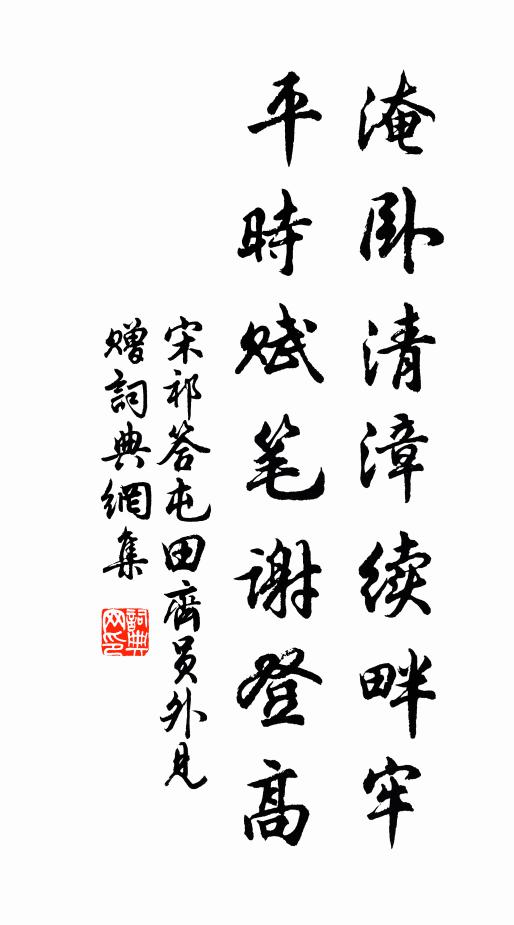 淹卧清漳续畔牢
平時赋笔谢登高
宋祁答屯田齊员外见
赠詞典網集
詞典網印